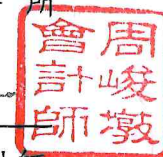 所
周峻墩
會計師